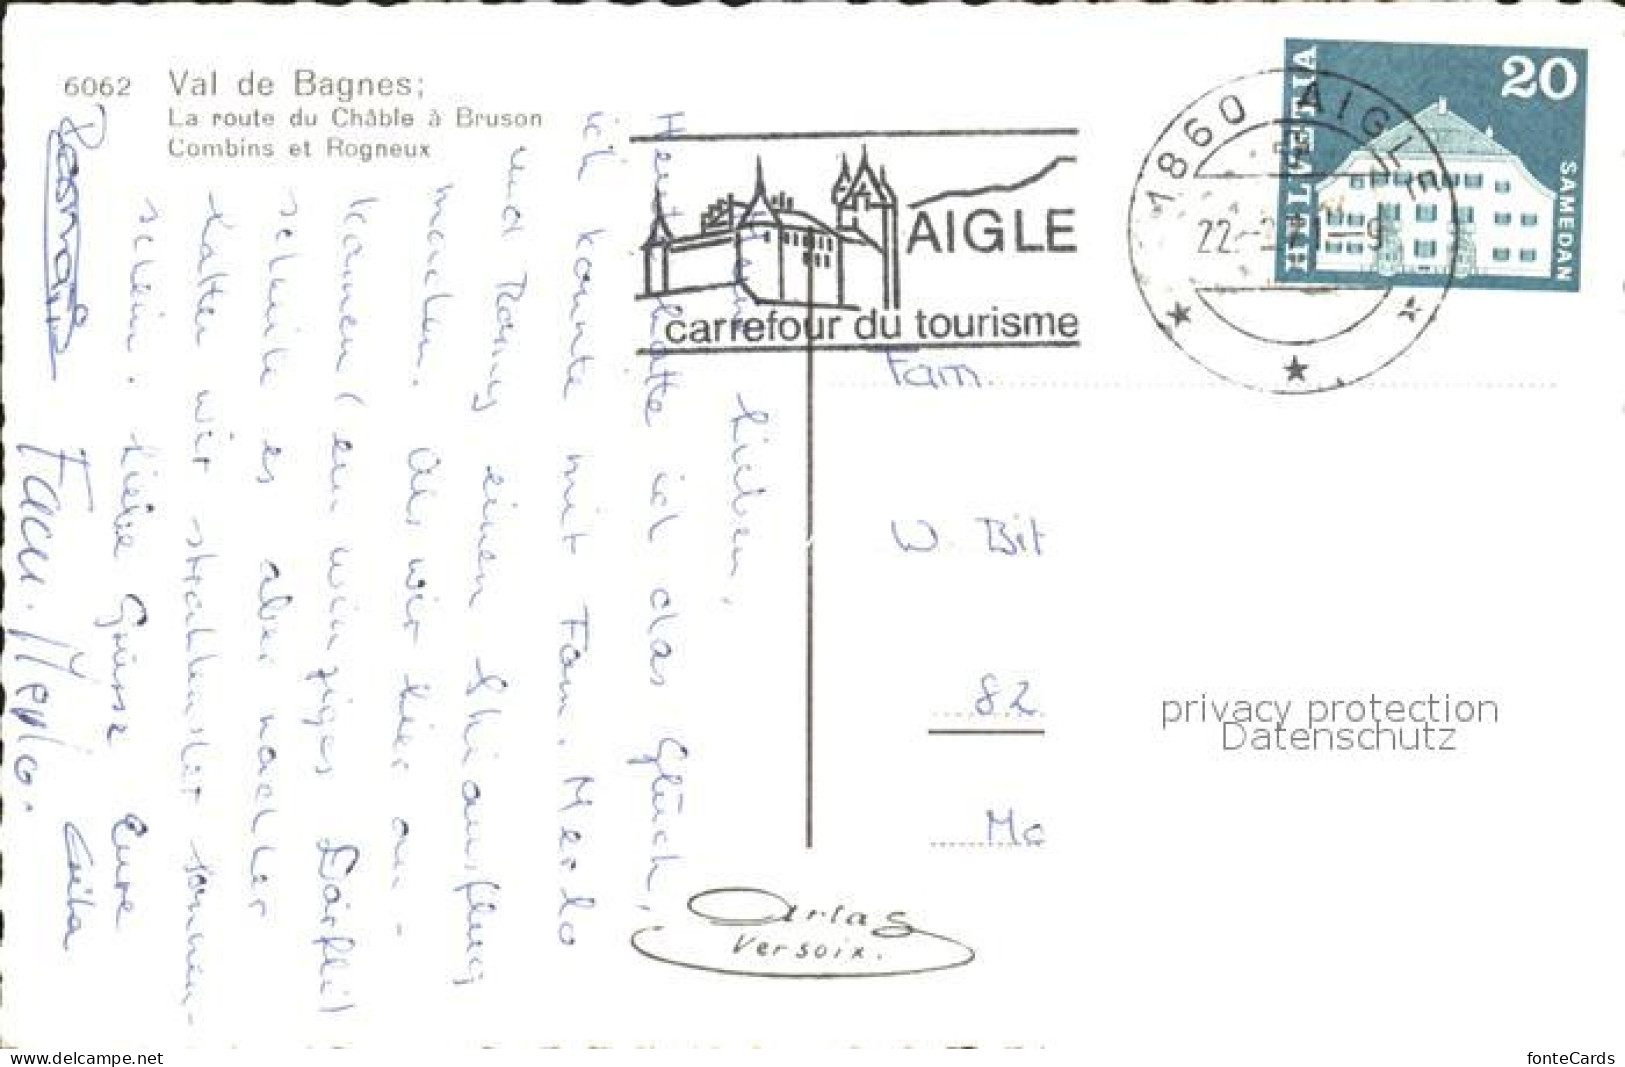 6062 Val de Bagnes;
La route du Châble à Bruson
Combins et Rogneux
AIGLE
carrefour du tourisme
1860 AIGLE
22.-2.71-9
HELVETIA
20
SAMEDAN
Lieben,
Heute hatte ich das Glück,
ich konnte mit Fam. Merlo
und Romy einen Skiausflug
machen. Als wir hier an-
kamen (ein winziges Dörfli)
schneite es aber nachher
hatten wir strahlenster sonnen-
schein. Liebe Grüsse Eure
Fam. Merlo.
Fam.
W. Bit
82
Ma
Artas
Versoix.
privacy protection
Datenschutz
www.delcampe.net
fonteCards